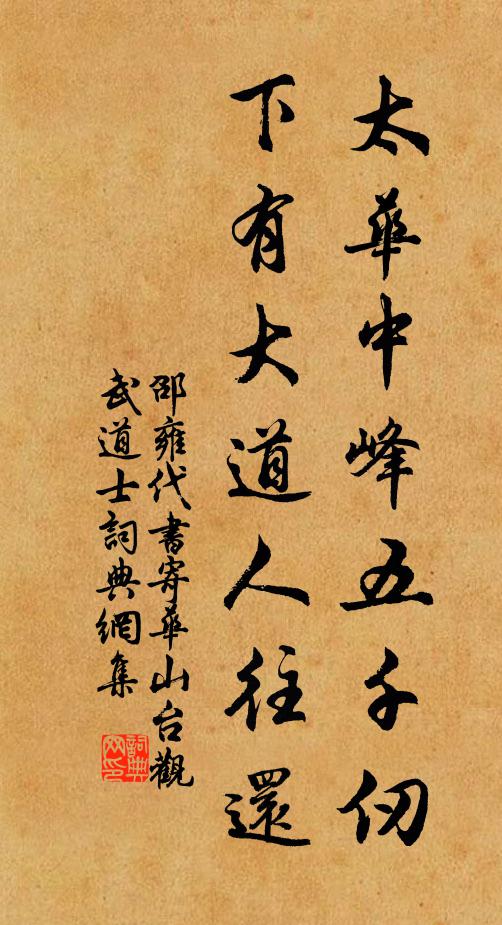 太華中峰五千仞
下有大道人往還
邵雍代書寄華山台觀
武道士詞典網集
詞典
网印